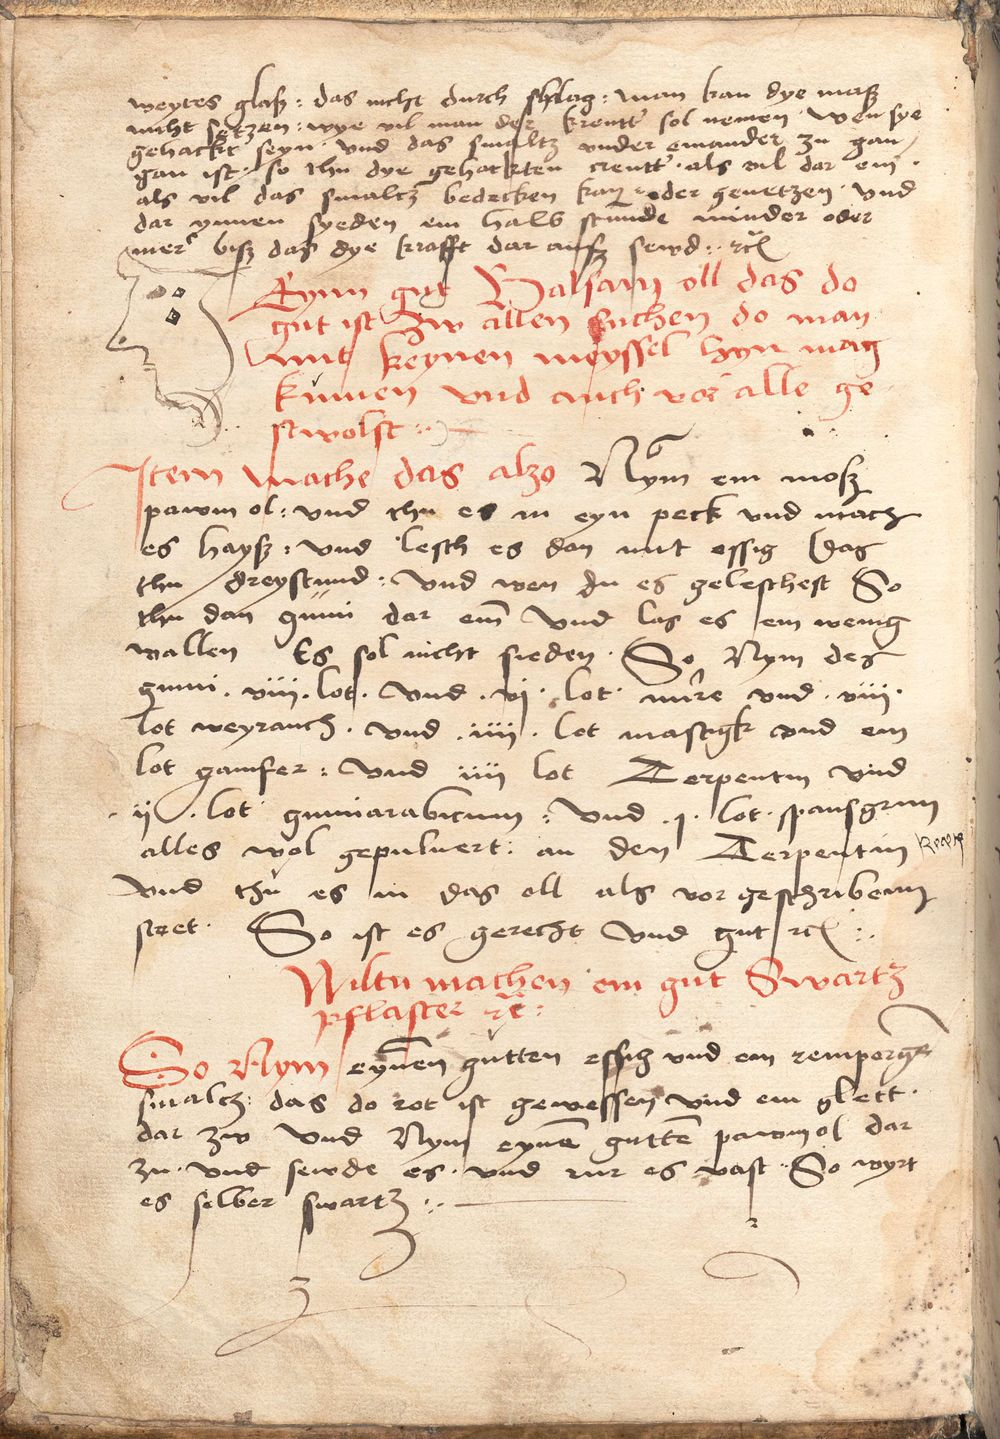 weytes glaß : das nicht durch schlag : man kan dye maß
nicht setzen : wye vil man der kreutt sol nemen · wen sye
gehackt seyn · vnd das smaltz vnder einander zu gan/
gan ist · so thu dye gehackten creutt · als vil dar ein ·
als vil das smaltz bedecken kan oder genetzen · vnd
dar ynnen syeden ein halb stunde minder oder
mer biß das dye krafft dar auß sewd : rc
Eynn gut Balsam oll das do
gut ist zw allen suchen do man
mit keynen meyssel hyn mag
kumen vnd auch vor alle ge
swolst :
Item mache das alzo Nym ein moß
pawm ol : vnd thu es in eyn peck vnd mach
es hayß : vnd lesch es dan mit essig Das
thu dreystund : vnd wen du es geleschest So
thu dan gumi dar ein vnd las es ein wenig
wallen Es sol nicht sieden · So Nym des
gumi · viii · lot · vnd · vj · lot · mirre vnd · viii ·
lot weyrauch · vnd · iiii · lot mastigk vnd ein
lot gamfer : vnd iiii lot Terpentin vnd
ij · lot gumiarabicum : vnd · j · lot · spansgrun
alles wol gepuluert : an den Terpentin
vnd thu es in das oll als vor geschribenn
stet · So ist es gerecht vnd gut rc :
Wiltu machen ein gut Swartz
pflaster rc :
So Nym eynen gutten essig vnd ein
smalcz : das do rot ist gewessen vnd ein glett ·
dar zw vnd Nym eynē guttē pawmol dar
zu · vnd sewde es · vnd rur es vast · So wyrt
es selber swartz :